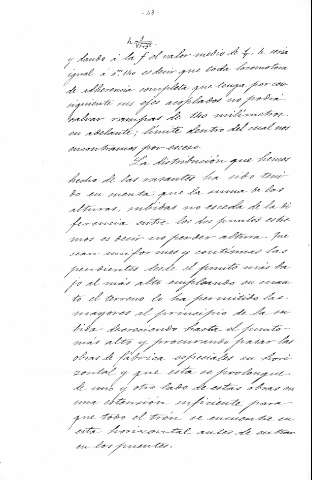 - 48 -
y dando á la f el valor medio de 1/7 h seria
igual á 0m,140 es decir que toda locomotora
de adherencia completa que tenga por con-
siguiente sus ejes acoplados no podrá
salvar rampas de 140 milímetros
en adelante; límite dentro del cual nos
encontramos por exceso.
La distribución que hemos
hecho de las rasantes ha sido tenien-
do en cuenta que la suma de las
alturas, subidas no exceda de la di
ferencia entre los dos puntos estre-
mos es decir no perder altura. Que
sean uniformes y contínuas las
pendientes desde el punto más ba
jo al más alto empleando en cuan
to el terreno lo ha permitido las
mayores al principio de la su
bida decreciendo hasta el punto
más alto y procurando pasar las
obras de fábrica especiales en hori
zontal y que esta se prolongue
de uno y otro lado de estas obras en
una estensión suficiente para
que todo el trén se encuentre en
esta horizontal antes de entrar
en los puentes.